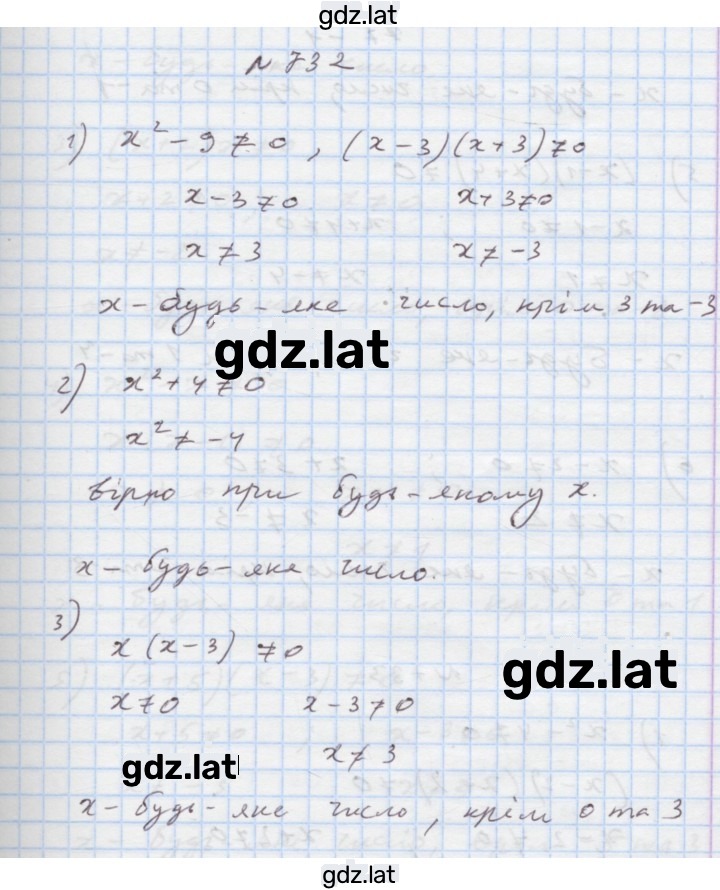 gdz.lat
№ 732
1) x² - 9 ≠ 0 , (x - 3)(x + 3) ≠ 0
x - 3 ≠ 0 x + 3 ≠ 0
x ≠ 3 x ≠ -3
x - будь - яке число, крім 3 та -3
gdz.lat
2) x² + 4 ≠ 0
x² ≠ -4
вірно при будь - якому x.
x - будь - яке число.
3)
x (x - 3) ≠ 0
gdz.lat
x ≠ 0 x - 3 ≠ 0
x ≠ 3
gdz.lat
x - будь - яке число, крім 0 та 3
gdz.lat